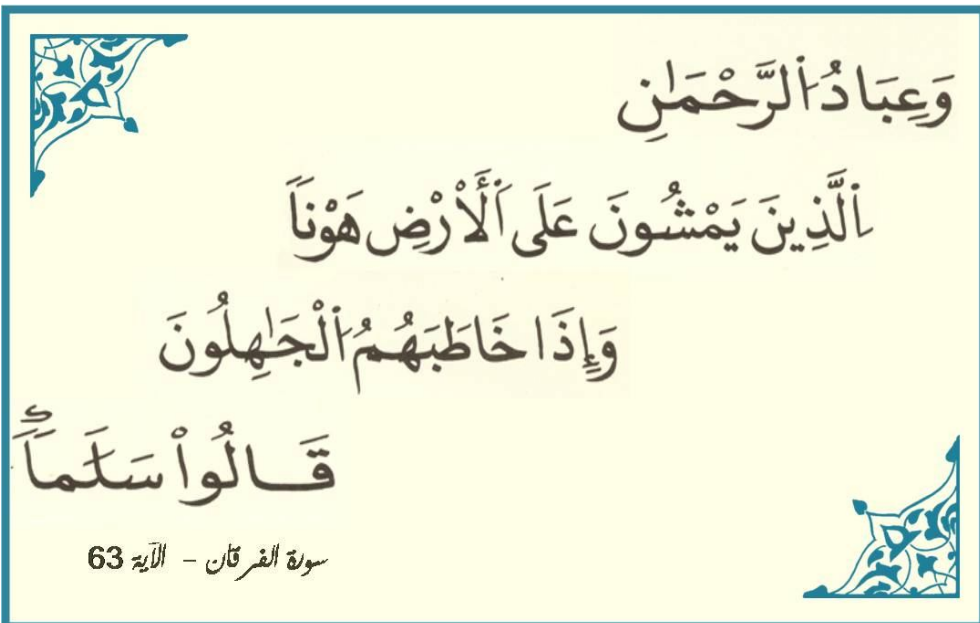 وَعِبَادُ اُ۬لرَّحْمَٰنِ
اِ۬لذِينَ يَمْشُونَ عَلَى اَ۬لَأرْضِ هَوْناٗ
وَإِذَا خَاطَبَهُمُ اُ۬لْجَٰهِلُونَ
قَالُواْ سَلَٰماٗۖ
سورة الفرقان - الآية 63